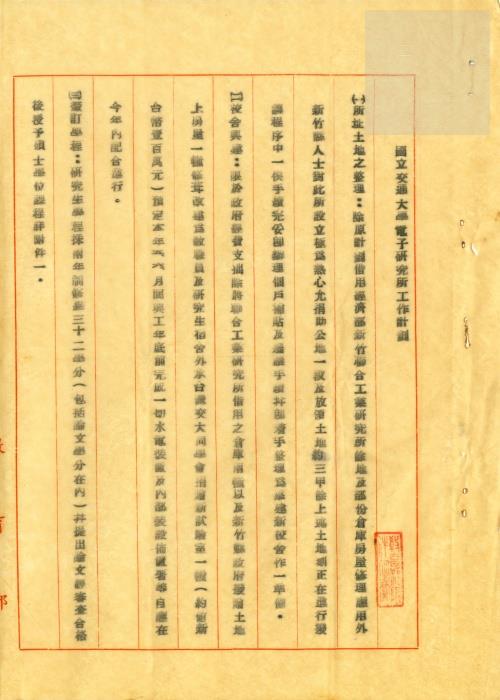 國立交通大學電子研究所工作計劃
㈠所址土地之整理：除原計劃借用經濟部新竹聯合工業研究所餘地及部份倉庫房屋修理應用外
新竹縣人士對此所設立極為熱心允捐助公地一段及放領土地約三甲除上項土地現正在進行撥
讓程序中一俟手續完公即辦理個戶補貼及過讓手續幷即着手整理為準建新校舍作一準備。
㈡校舍興建：限於政府經費支絀除將聯合工業研究所借用之倉庫兩幢以及新竹縣政府撥贈土地
上房屋一幢修葺改建為教職員及研究生宿舍外承台灣交大同學會捐建新試驗室一幢（約值新
台幣壹百萬元）預定本年五六月間興工年底前完成一切水電裝置及內部裝設佈置等等自應在
今年內配合進行。
㈢釐訂學程：研究生學程採兩年制修業三十二學分（包括論文學分在內）幷提出論文經審查合格
後授予碩士學位課程詳附件一。
教育部